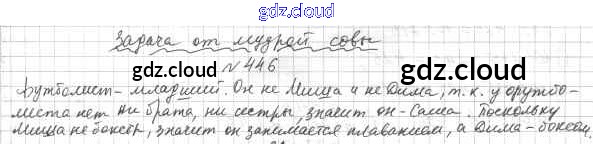 gdz.cloud
Задача от мудрой совы
gdz.cloud
№ 446
gdz.cloud
Футболист – младший. Он не Миша и не Дима, т. к. у футбо-
листа нет ни брата, ни сестры, значит он – Саша. Поскольку
Миша не боксер, значит он занимается плаванием, а Дима – боксом.
gdz.cloud
gdz.cloud